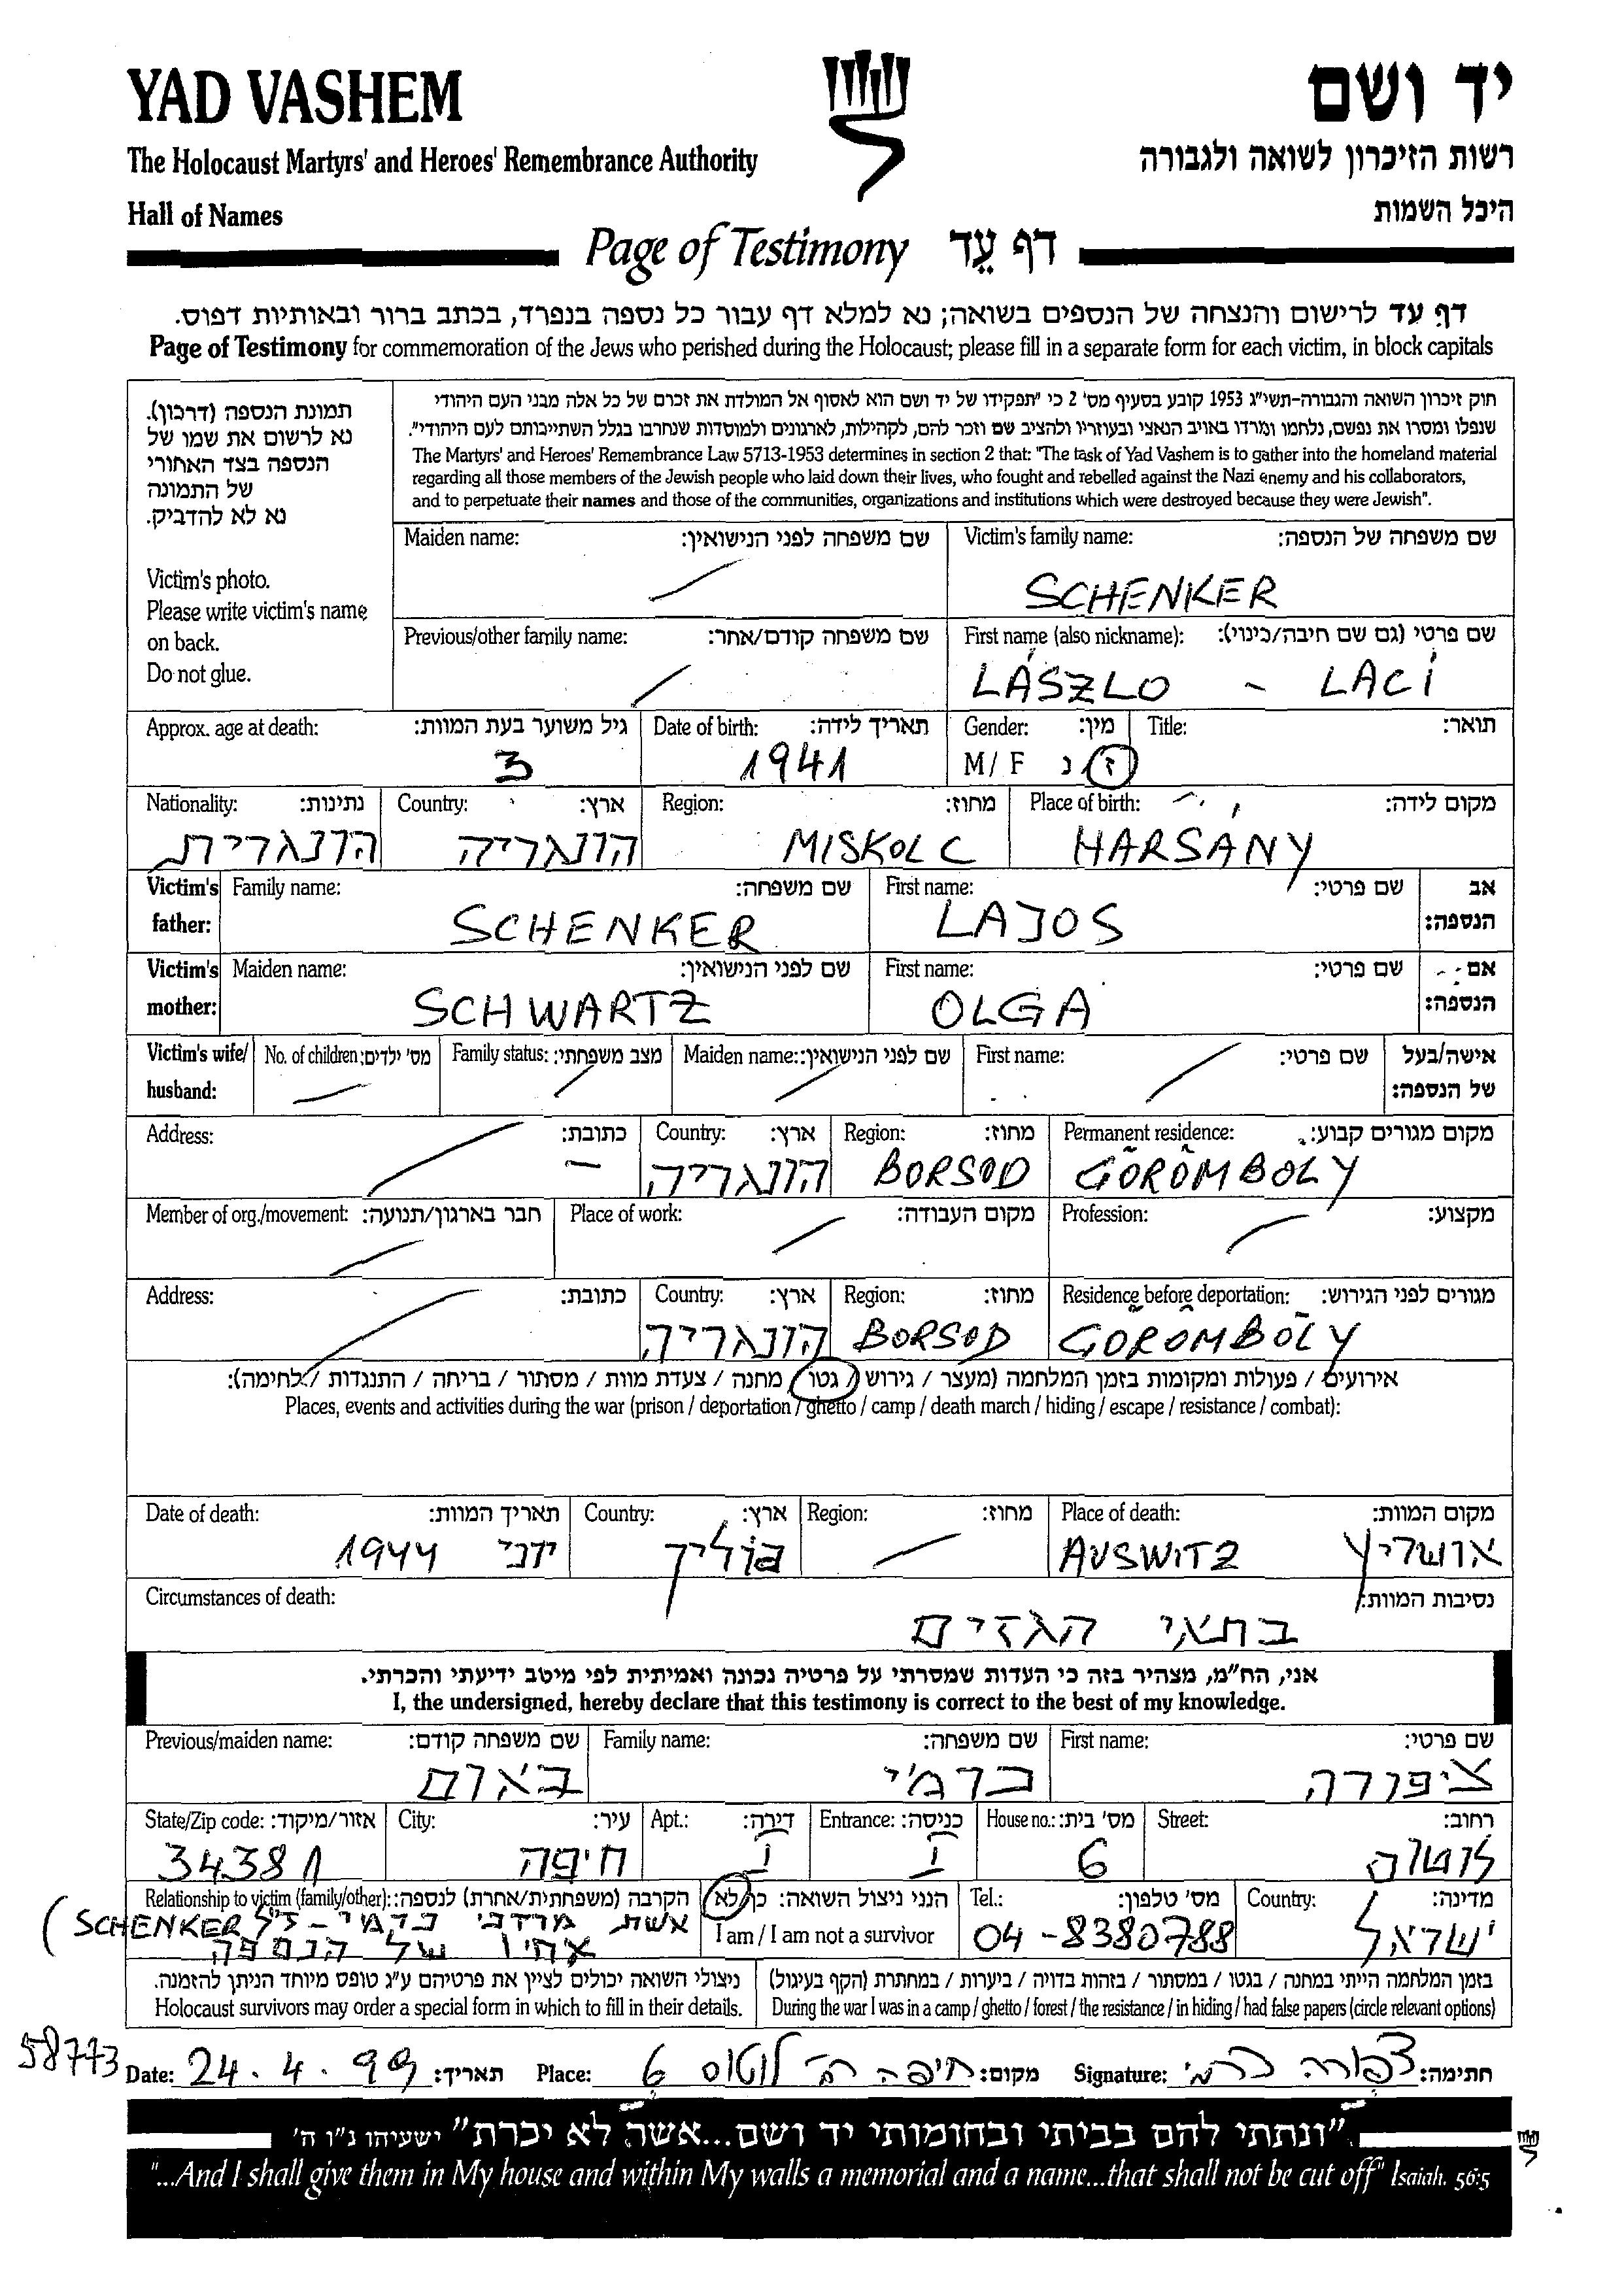 YAD VASHEM
יד ושם
The Holocaust Martyrs' and Heroes' Remembrance Authority
רשות הזיכרון לשואה ולגבורה
Hall of Names
היכל השמות
Page of Testimony דף עֵד
דף עד לרישום והנצחה של הנספים בשואה; נא למלא דף עבור כל נספה בנפרד, בכתב ברור ובאותיות דפוס.
Page of Testimony for commemoration of the Jews who perished during the Holocaust; please fill in a separate form for each victim, in block capitals
תמונת הנספה (דרכון).
נא לרשום את שמו של
הנספה בצד האחורי
של התמונה
נא לא להדביק.
Victim's photo.
Please write victim's name
on back.
Do not glue.
חוק זיכרון השואה והגבורה-תשי"ג 1953 קובע בסעיף מס' 2 כי "תפקידו של יד ושם הוא לאסוף אל המולדת את זכרם של כל אלה מבני העם היהודי
שנפלו ומסרו את נפשם, נלחמו ומרדו באויב הנאצי ובעוזריו ולהציב שם וזכר להם, לקהילות, לארגונים ולמוסדות שנחרבו בגלל השתייכותם לעם היהודי".
The Martyrs' and Heroes' Remembrance Law 5713-1953 determines in section 2 that: "The task of Yad Vashem is to gather into the homeland material
regarding all those members of the Jewish people who laid down their lives, who fought and rebelled against the Nazi enemy and his collaborators,
and to perpetuate their names and those of the communities, organizations and institutions which were destroyed because they were Jewish".
Maiden name: שם משפחה לפני הנישואין: Victim's family name: שם משפחה של הנספה:
SCHENKER
Previous/other family name: שם משפחה קודם/אחר: First name (also nickname): שם פרטי (גם שם חיבה/כינוי):
LÁSZLO - LACI
Approx. age at death: גיל משוער בעת המוות: Date of birth: תאריך לידה: Gender: מין: Title: תואר:
3 1941 M / F ז נ
Nationality: נתינות: Country: ארץ: Region: מחוז: Place of birth: מקום לידה:
הונגרית הונגריה MISKOLC HARSANY
Victim's father: Family name: שם משפחה: First name: שם פרטי: אב הנספה:
SCHENKER LAJOS
Victim's mother: Maiden name: שם לפני הנישואין: First name: שם פרטי: אם הנספה:
SCHWARTZ OLGA
Victim's wife/ husband: No. of children: מס' ילדים: Family status: מצב משפחתי: Maiden name: שם לפני הנישואין: First name: שם פרטי: אישה/בעל של הנספה:
Address: כתובת: Country: ארץ: Region: מחוז: Permanent residence: מקום מגורים קבוע:
הונגריה BORSOD GÖRÖMBOLY
Member of org./movement: חבר בארגון/תנועה: Place of work: מקום העבודה: Profession: מקצוע:
Address: כתובת: Country: ארץ: Region: מחוז: Residence before deportation: מגורים לפני הגירוש:
הונגריה BORSOD GÖRÖMBÖLY
אירועים / פעולות ומקומות בזמן המלחמה (מעצר / גירוש / גטו / מחנה / צעדת מוות / מסתור / בריחה / התנגדות / לחימה):
Places, events and activities during the war (prison / deportation / ghetto / camp / death march / hiding / escape / resistance / combat):
Date of death: תאריך המוות: Country: ארץ: Region: מחוז: Place of death: מקום המוות:
יוני 1944 פולין AUSWITZ אושויץ
Circumstances of death: נסיבות המוות:
בתאי הגזים
אני, הח"מ, מצהיר בזה כי העדות שמסרתי על פרטיה נכונה ואמיתית לפי מיטב ידיעתי והכרתי.
I, the undersigned, hereby declare that this testimony is correct to the best of my knowledge.
Previous/maiden name: שם משפחה קודם: Family name: שם משפחה: First name: שם פרטי:
באום כרמי ציפורה
State/Zip code: אזור/מיקוד: City: עיר: Apt.: דירה: Entrance: כניסה: House no.: מס' בית: Street: רחוב:
34381 חיפה 6 לוטוס
Relationship to victim (family/other): הקרבה (משפחתית/אחרת) לנספה: הנני ניצול השואה: כן/לא Tel.: מס' טלפון: Country: מדינה:
(SCHENKER אשת מרדכי כרמי - ז"ל I am / I am not a survivor 04-8380788 ישראל
אחיו של הנספה
ניצולי השואה יכולים לציין את פרטיהם ע"ג טופס מיוחד הניתן להזמנה. בזמן המלחמה הייתי במחנה / בגטו / במסתור / בזהות בדויה / ביערות / במחתרת (הקף בעיגול)
Holocaust survivors may order a special form in which to fill in their details. During the war I was in a camp / ghetto / forest / the resistance / in hiding / had false papers (circle relevant options)
58773
Date: 24.4.99 תאריך: Place: חיפה רח' לוטוס 6 מקום: Signature: צפורה כרמי חתימה:
"ונתתי להם בביתי ובחומותי יד ושם...אשר לא יכרת" ישעיהו נ"ו ה'
"...And I shall give them in My house and within My walls a memorial and a name...that shall not be cut off" Isaiah. 56:5